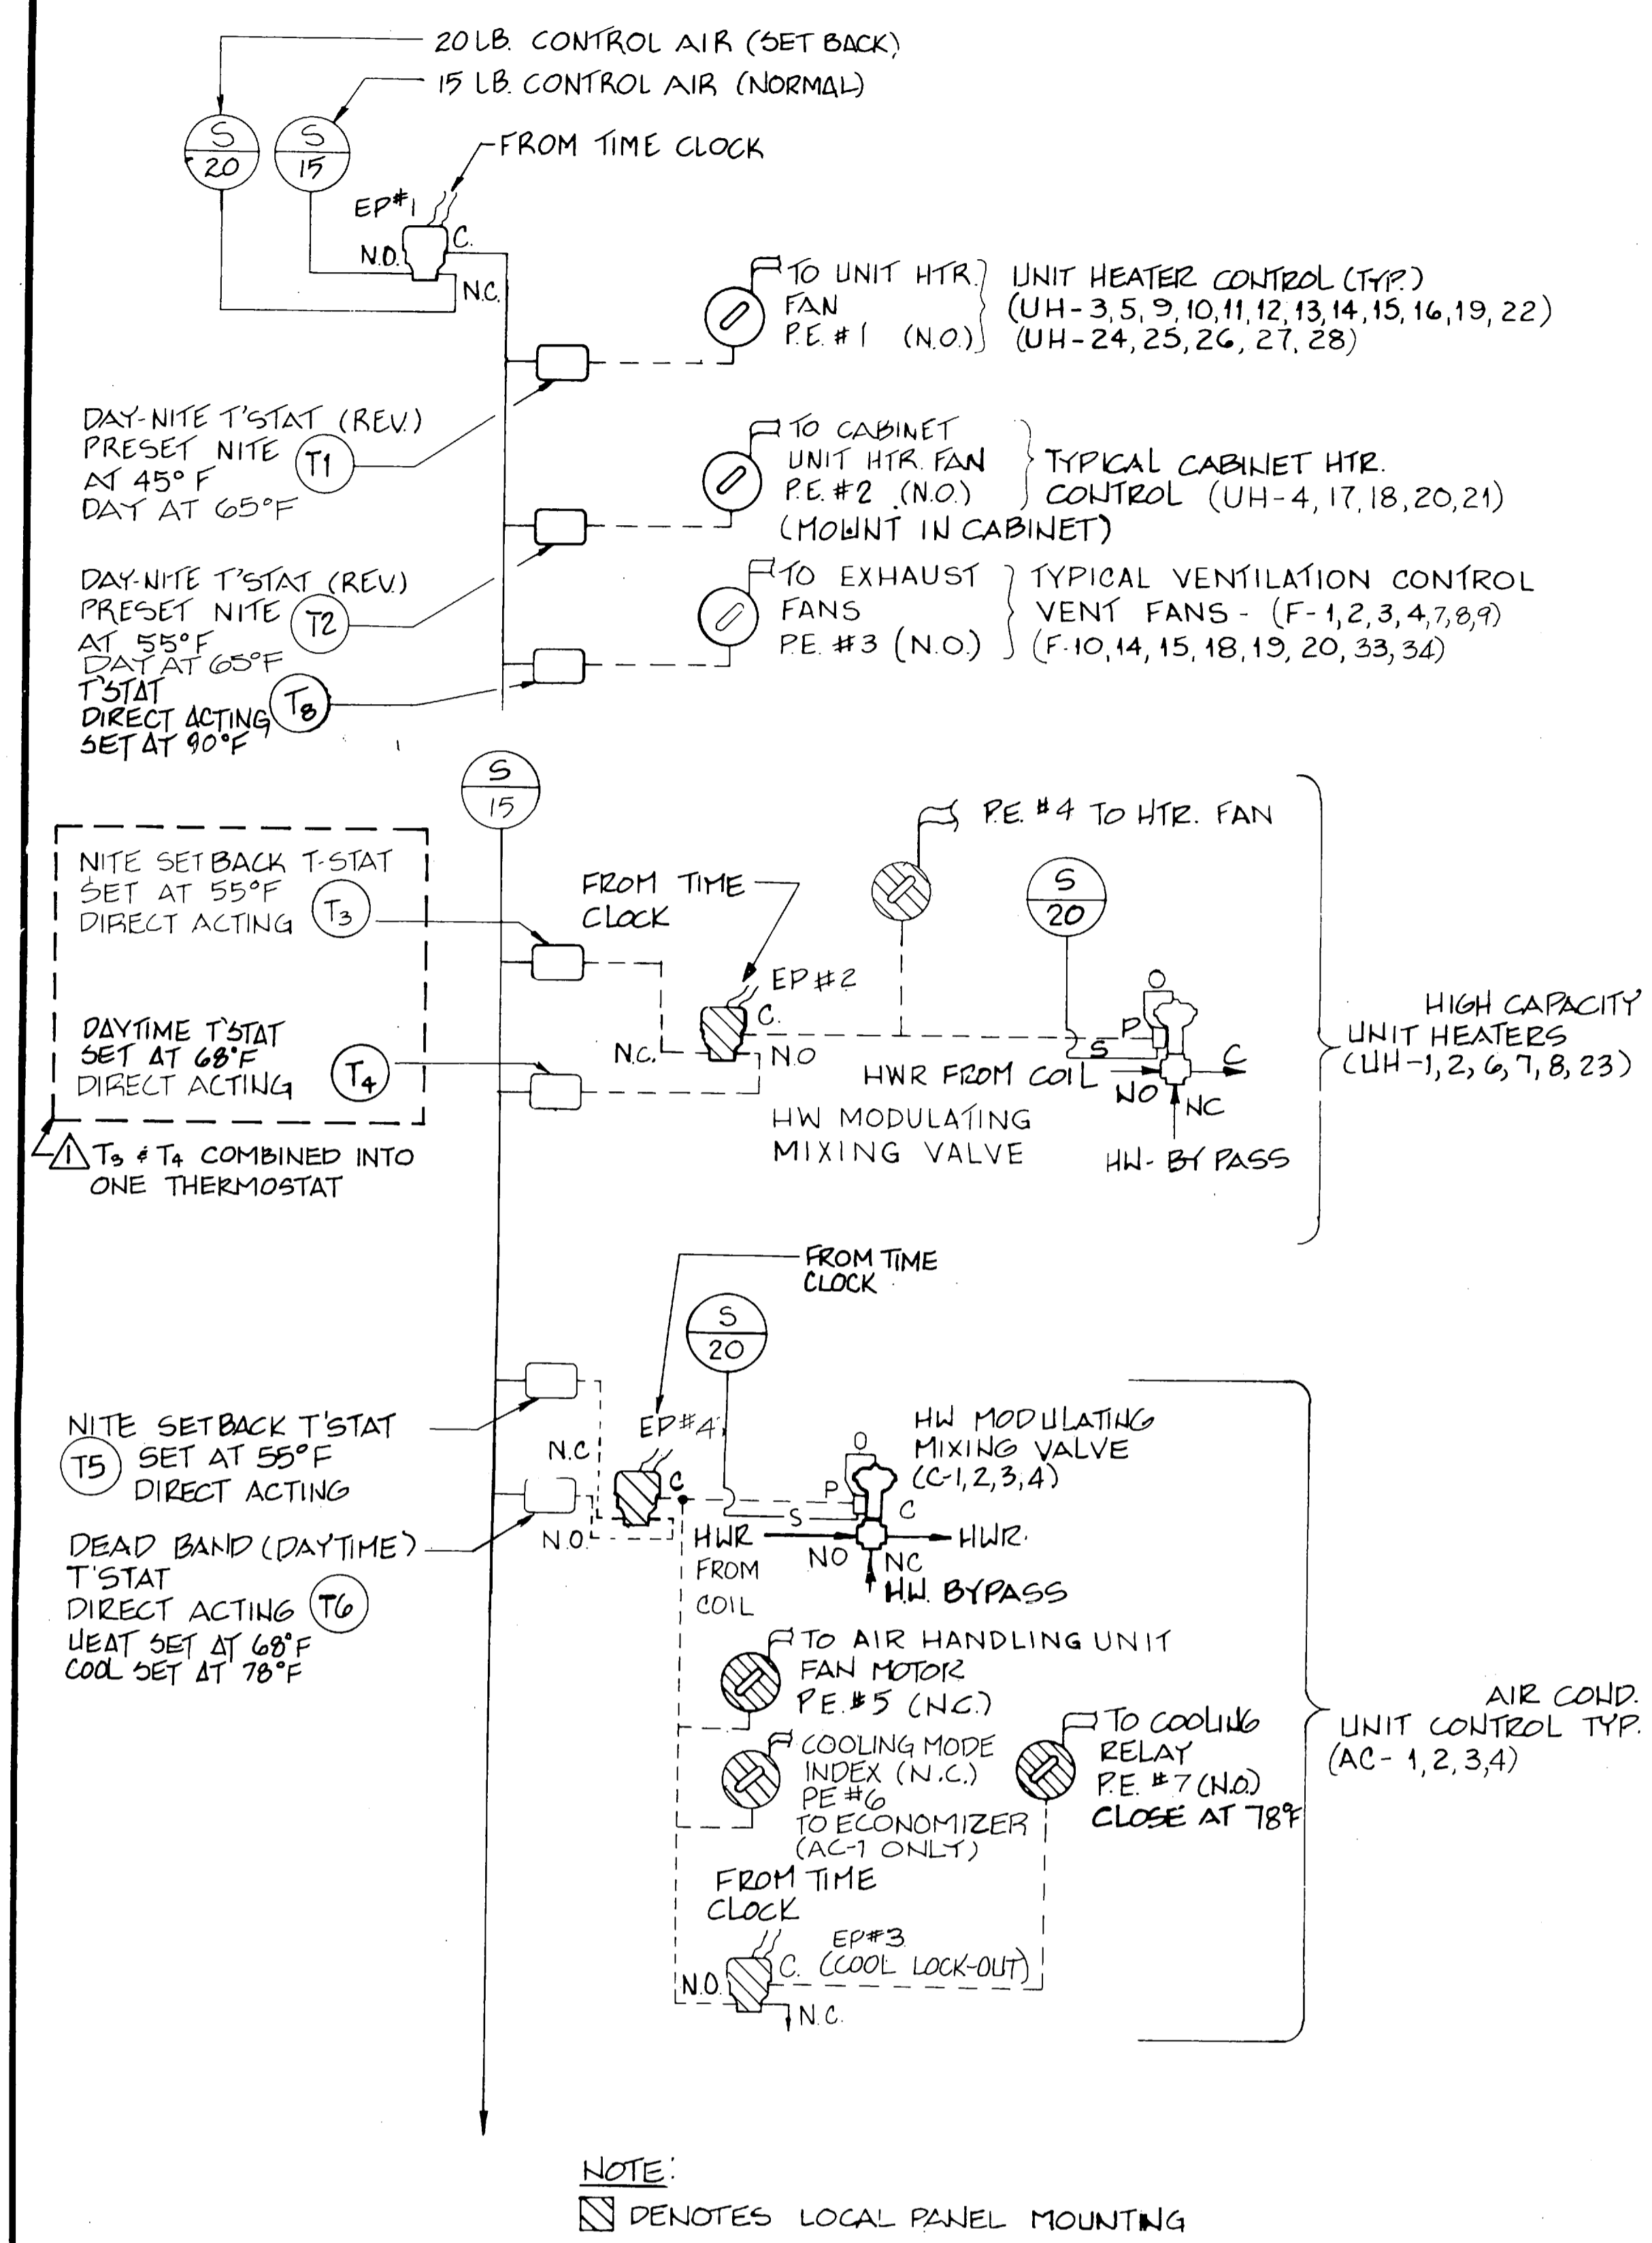 20 LB. CONTROL AIR (SET BACK)
15 LB. CONTROL AIR (NORMAL)
S
20
S
15
FROM TIME CLOCK
EP#1
C.
N.O.
N.C.
TO UNIT HTR.
FAN
P.E. #1 (N.O.)
UNIT HEATER CONTROL (TYP.)
(UH-3,5,9,10,11,12,13,14,15,16,19,22)
(UH-24,25,26,27,28)
DAY-NITE T'STAT (REV.)
PRESET NITE
AT 45°F
DAY AT 65°F
T1
TO CABINET
UNIT HTR. FAN
P.E. #2 (N.O.)
(MOUNT IN CABINET)
TYPICAL CABINET HTR.
CONTROL (UH-4,17,18,20,21)
DAY-NITE T'STAT (REV.)
PRESET NITE
AT 55°F
DAY AT 65°F
T2
TO EXHAUST
FANS
P.E. #3 (N.O.)
TYPICAL VENTILATION CONTROL
VENT FANS - (F-1,2,3,4,7,8,9)
(F-10,14,15,18,19,20,33,34)
T'STAT
DIRECT ACTING
SET AT 90°F
T8
S
15
NITE SETBACK T-STAT
SET AT 55°F
DIRECT ACTING
T3
DAYTIME T'STAT
SET AT 68°F
DIRECT ACTING
T4
1 T3 & T4 COMBINED INTO
ONE THERMOSTAT
FROM TIME
CLOCK
EP#2
C.
N.C.
N.O
P.E. #4 TO HTR. FAN
S
20
O
P
S
C
HWR FROM COIL
NO
NC
HW MODULATING
MIXING VALVE
HW-BY PASS
HIGH CAPACITY
UNIT HEATERS
(UH-1,2,6,7,8,23)
FROM TIME
CLOCK
S
20
NITE SETBACK T'STAT
SET AT 55°F
DIRECT ACTING
T5
EP#4
N.C
C
N.O.
DEAD BAND (DAYTIME)
T'STAT
DIRECT ACTING
HEAT SET AT 68°F
COOL SET AT 78°F
T6
HW MODULATING
MIXING VALVE
(C-1,2,3,4)
O
P
S
C
HWR
FROM
COIL
HWR.
NO
NC
H.W. BYPASS
TO AIR HANDLING UNIT
FAN MOTOR
P.E. #5 (N.C.)
COOLING MODE
INDEX (N.C.)
PE #6
TO ECONOMIZER
(AC-1 ONLY)
TO COOLING
RELAY
P.E. #7 (N.O.)
CLOSE AT 78°F
AIR COND.
UNIT CONTROL TYP.
(AC-1,2,3,4)
FROM TIME
CLOCK
EP#3
C. (COOL LOCK-OUT)
N.O.
N.C.
NOTE:
DENOTES LOCAL PANEL MOUNTING